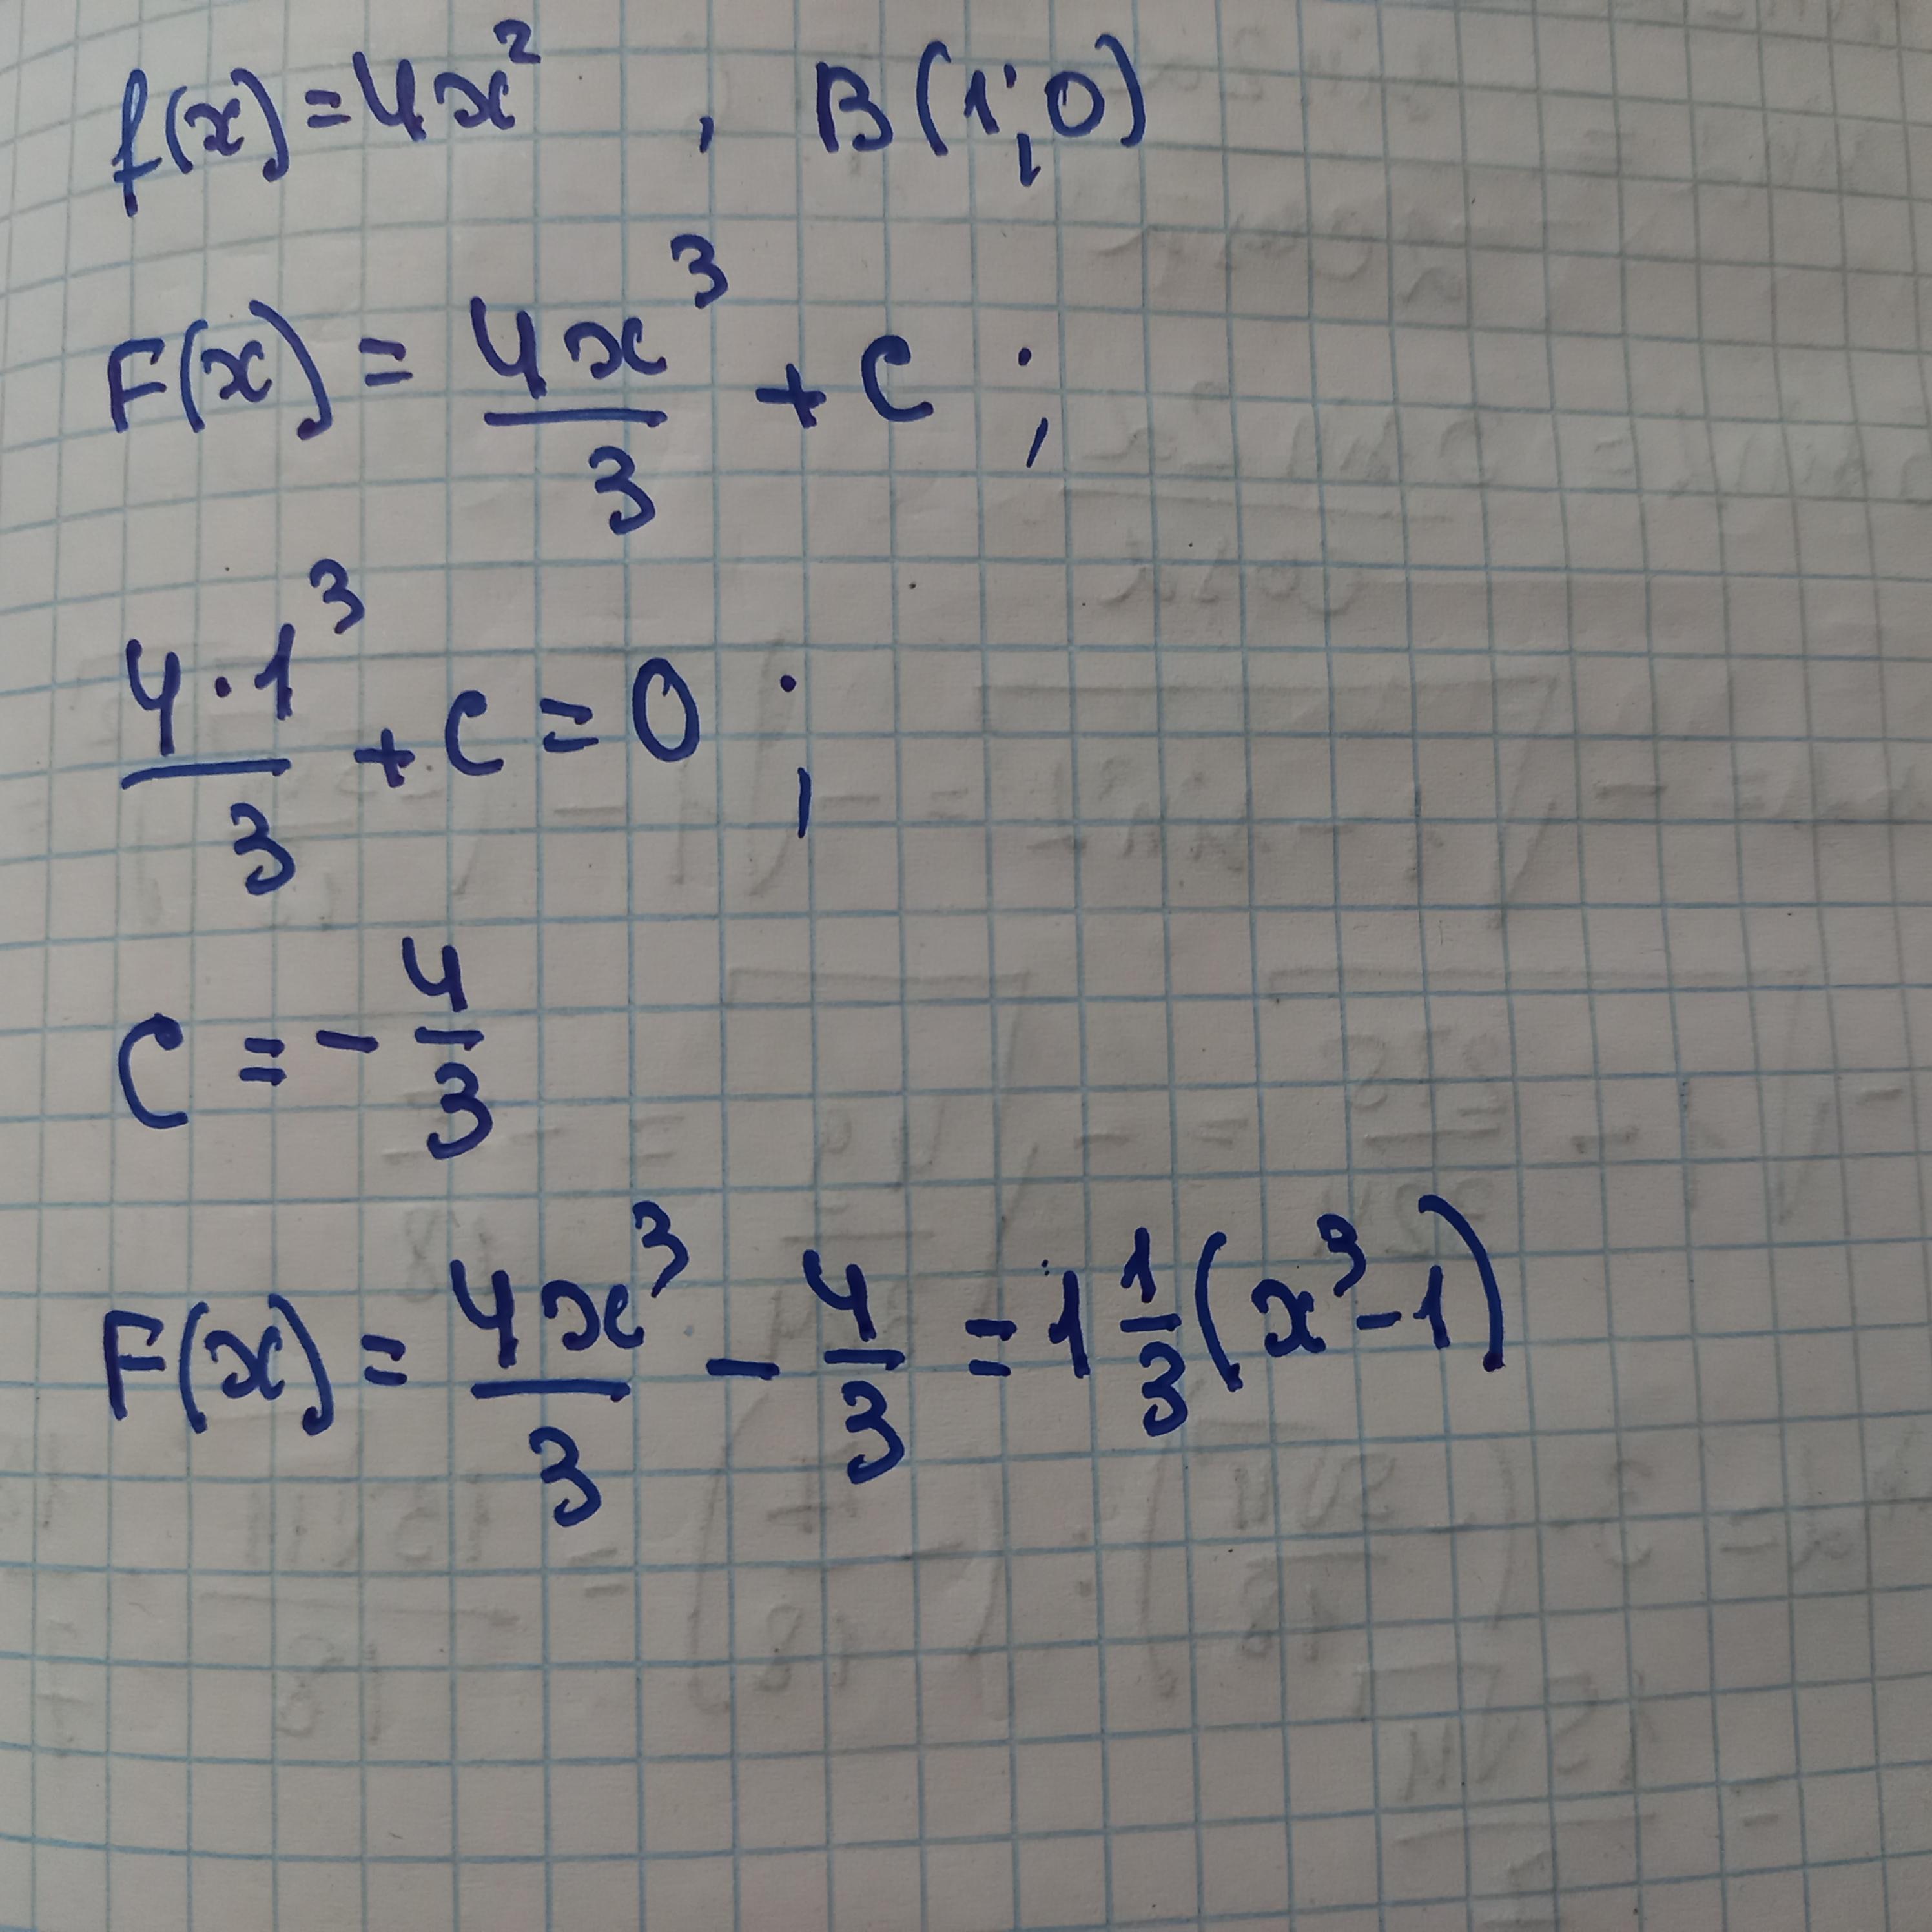 f(x)=4x² , B(1;0)
F(x) = 4x³/3 + C ;
4·1³/3 + C = 0 ;
C = -4/3
F(x) = 4x³/3 - 4/3 = 1 1/3 (x³-1)